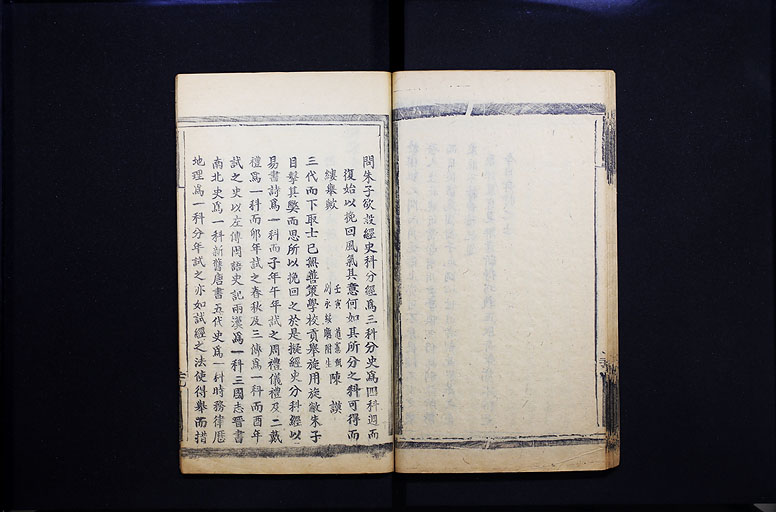 問朱子欲設經史科分經爲三科分史爲四科週而
復始以挽回風氣其意何如其所分之科可得而
縷舉歟
壬寅
永綏廳附生 陳謨
三代而下取士已無善策學校貢舉旋用旋敝朱子
目擊其獘而思所以挽回之於是擬經史分科經以
易書詩爲一科而子年午年試之周禮儀禮及二戴
禮爲一科而卯年試之春秋及三傳爲一科而酉年
試之史以左傳國語史記兩漢爲一科三國志晉書
南北史爲一科新舊唐書五代史爲一科時務律厯
地理爲一科分年試之亦如試經之法使得舉而措